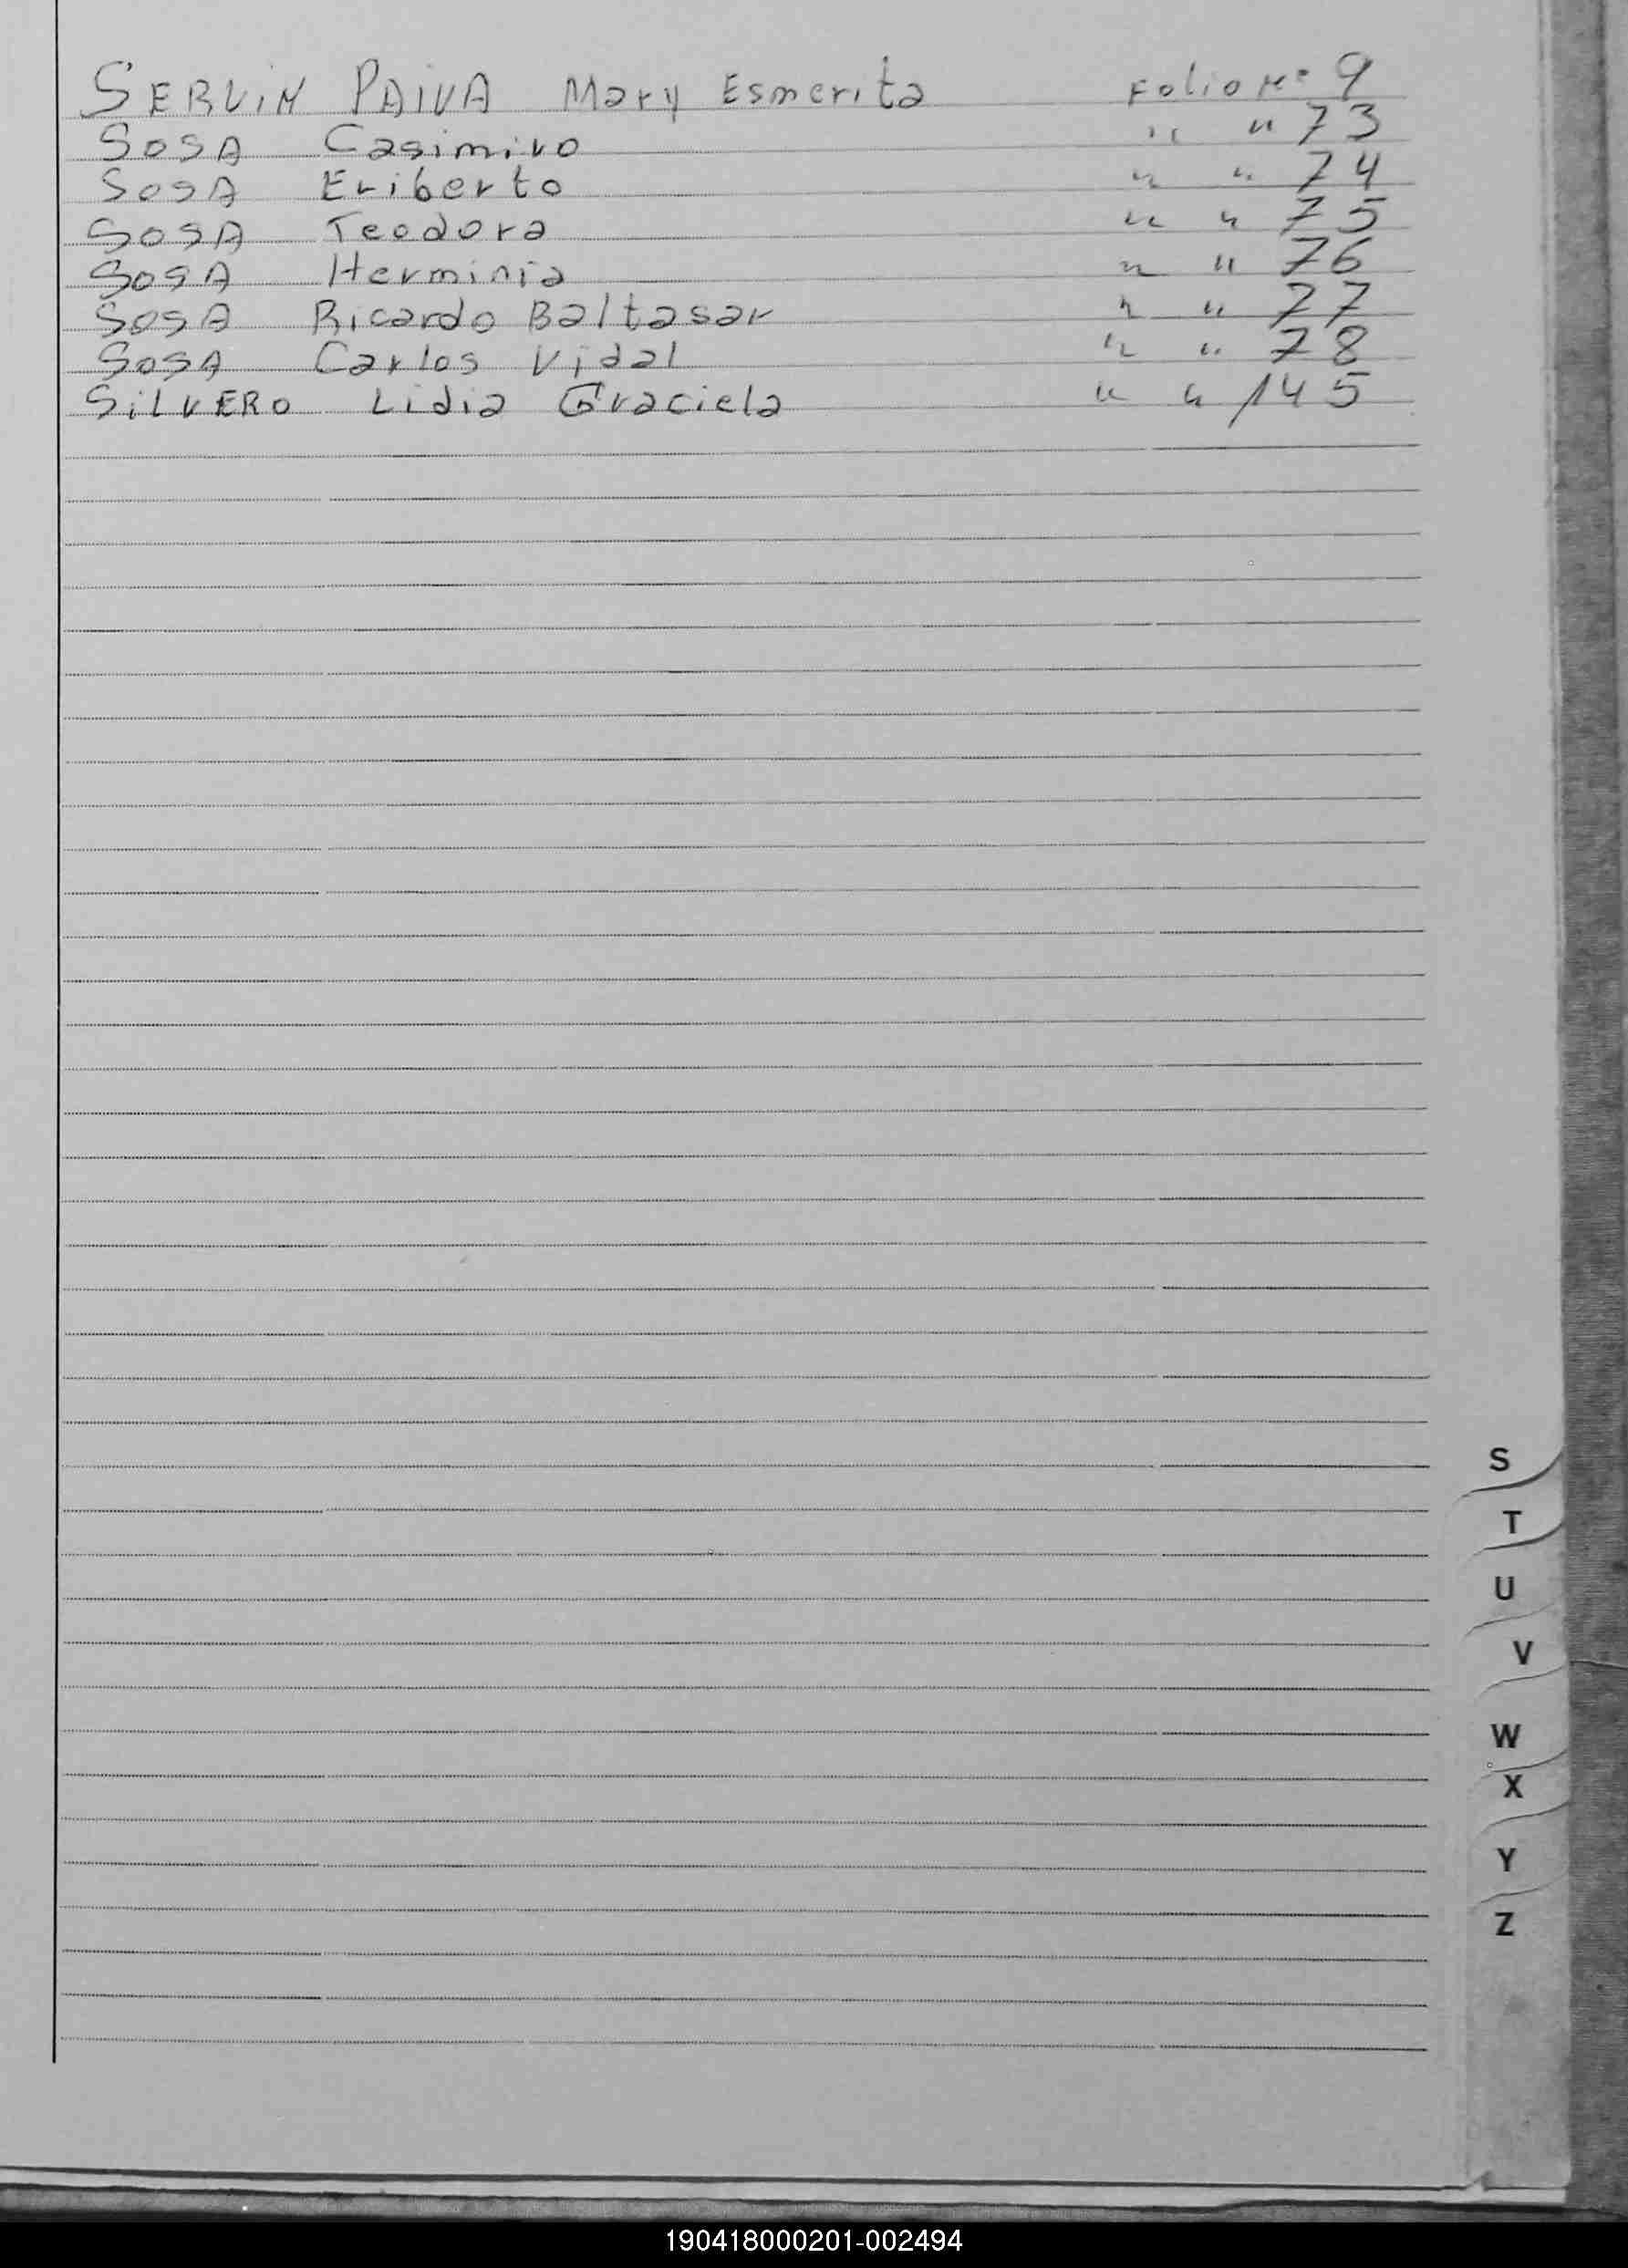 SERVIN PAIVA Mary Esmerita Folio Nº 9
SOSA Casimiro " " 73
SOSA Eriberto " " 74
SOSA Teodora " " 75
SOSA Herminia " " 76
SOSA Ricardo Baltasar " " 77
SOSA Carlos Vidal " " 78
SILVERO Lidia Graciela " " 145
S
T
U
V
W
X
Y
Z
190418000201-002494